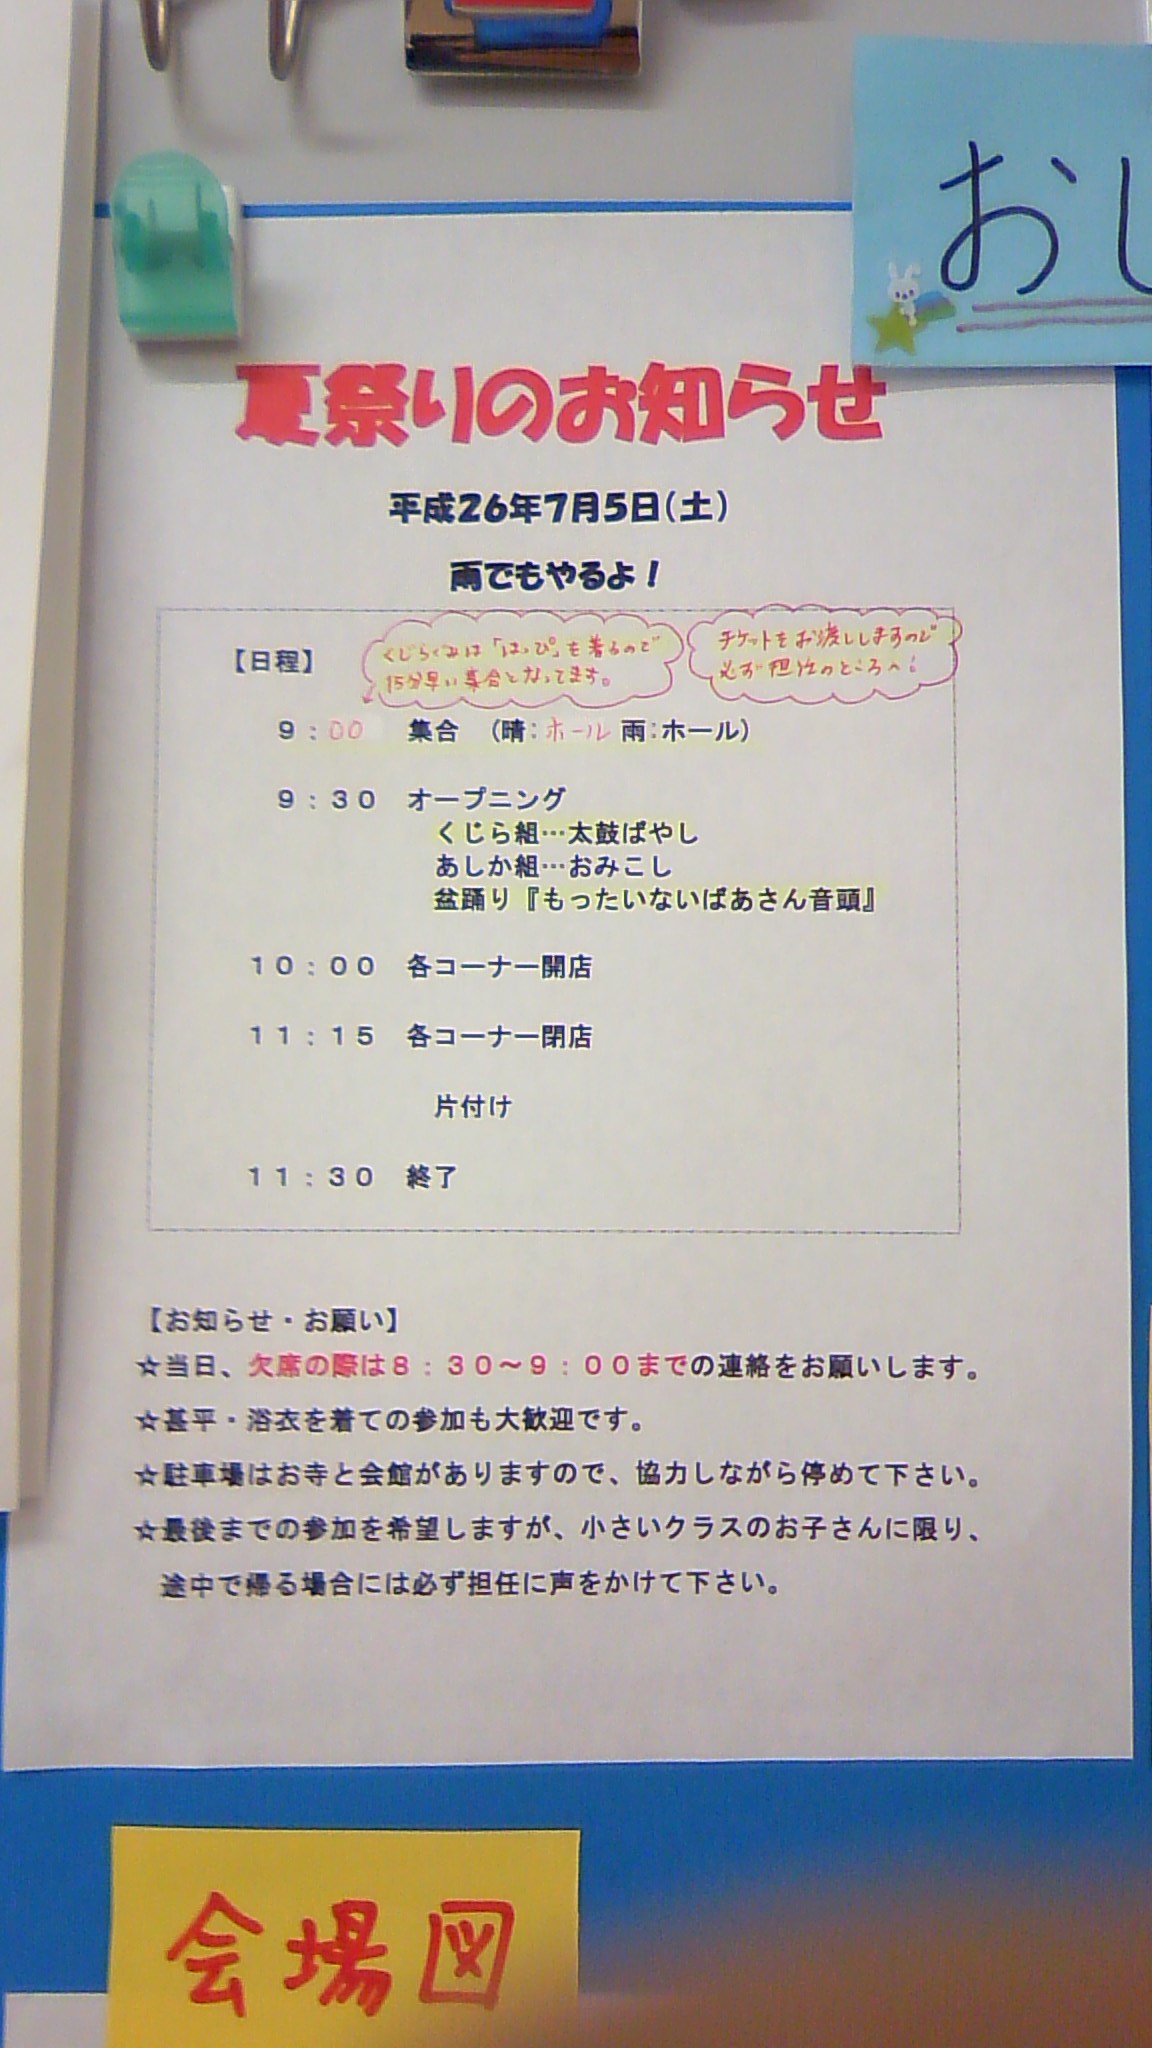 おし
夏祭りのお知らせ
平成26年7月5日(土)
雨でもやるよ！
【日程】
くじらぐみは「はっぴ」も着るので
15分早い集合となってます。
チケットをお渡ししますので
必ず担任のところへ！
9：00　集合　（晴：ホール 雨：ホール）
9：30　オープニング
くじら組…太鼓ばやし
あしか組…おみこし
盆踊り『もったいないばあさん音頭』
10：00　各コーナー開店
11：15　各コーナー閉店
片付け
11：30　終了
【お知らせ・お願い】
☆当日、欠席の際は8：30～9：00までの連絡をお願いします。
☆甚平・浴衣を着ての参加も大歓迎です。
☆駐車場はお寺と会館がありますので、協力しながら停めて下さい。
☆最後までの参加を希望しますが、小さいクラスのお子さんに限り、
途中で帰る場合には必ず担任に声をかけて下さい。
会場図